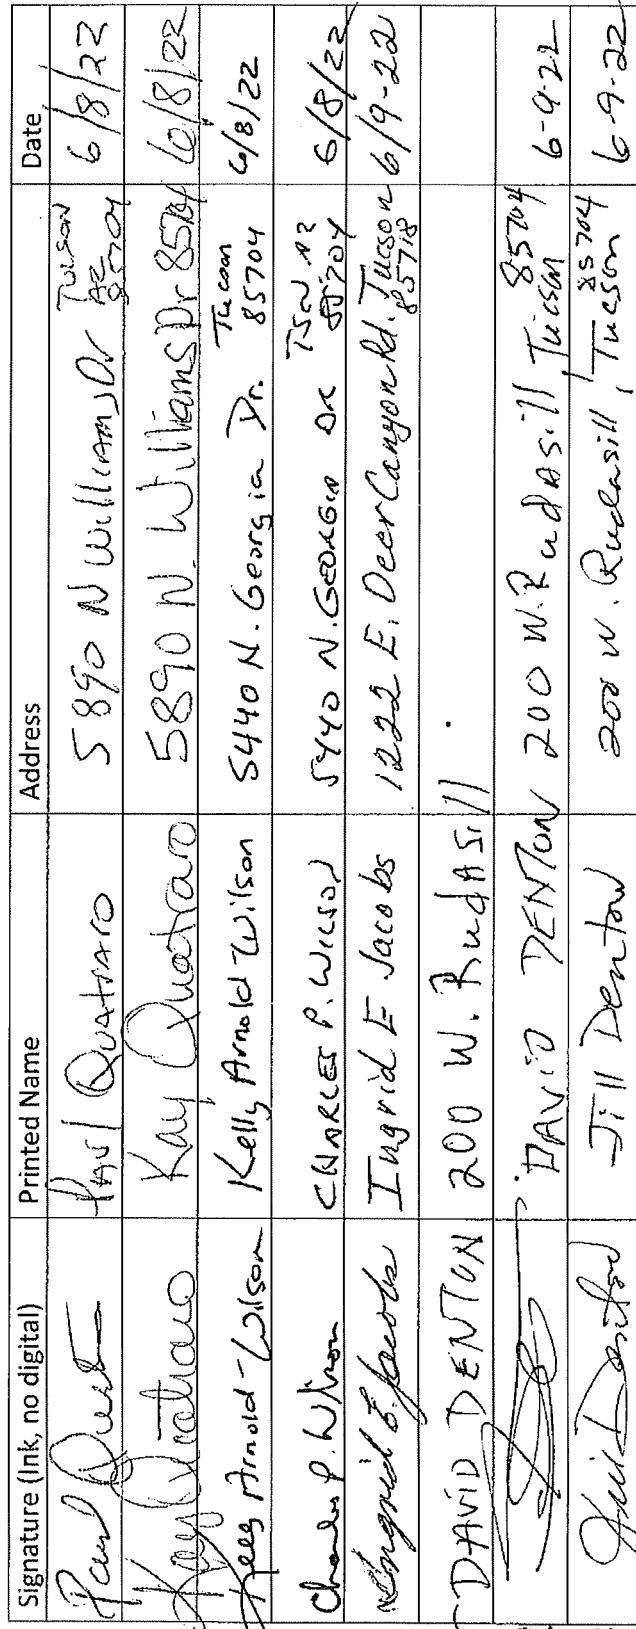 Signature (Ink, no digital) Printed Name Address Date
Paul Quatraro PAUl QuATRARO 5890 N WilliAMS Dr Tucson AZ 85704 6/8/22
Kay Quatraro Kay Quatraro 5890 N. Williams Dr 85704 6/8/22
Kelly Arnold-Wilson Kelly Arnold-Wilson 5440 N. Georgia Dr. Tucson 85704 6/8/22
Charles P. Wilson CHARLES P. WILSON 5440 N. GEORGIA DR TSN AZ 85704 6/8/22
Ingrid E. Jacobs Ingrid E Jacobs 1222 E. Deer Canyon Rd. Tucson 85718 6/9-22
DAViD DENTON 200 W. RudASill .
DAViD DENTON 200 W. RudASill Tucson 85704 6-9-22
Jill Denton Jill Denton 200 W. Rudasill, Tucson 85704 6-9-22